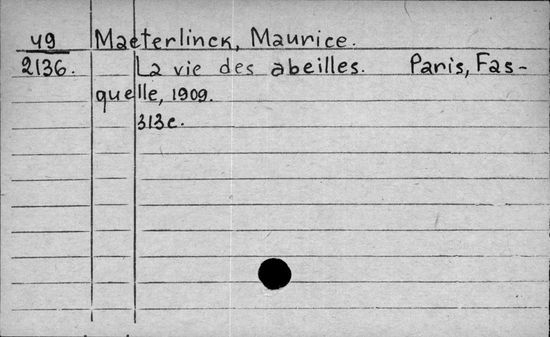 49 Maeterlinck, Maurice.
2136. La vie des abeilles. Paris, Fas-
quelle, 1909.
313c.